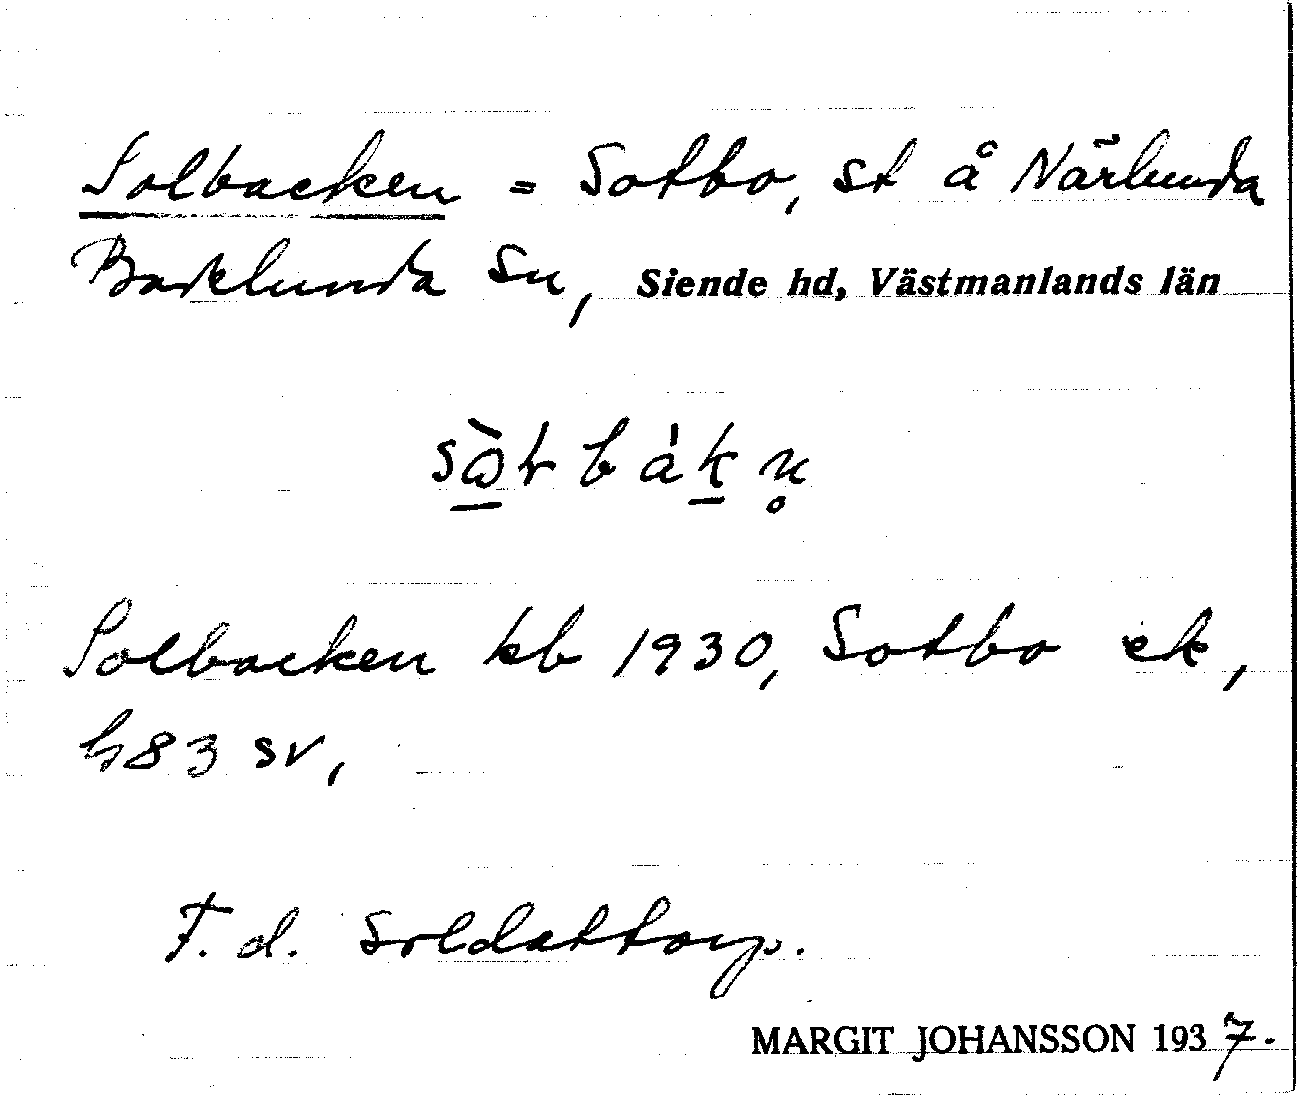 Solbacken = Sotbo, st å Närlunda
Badelunda sn, Siende hd, Västmanlands län
Solbacken kb 1930, Sotbo ek,
h83 sv,
F. d. soldattorp.
MARGIT JOHANSSON 1937.